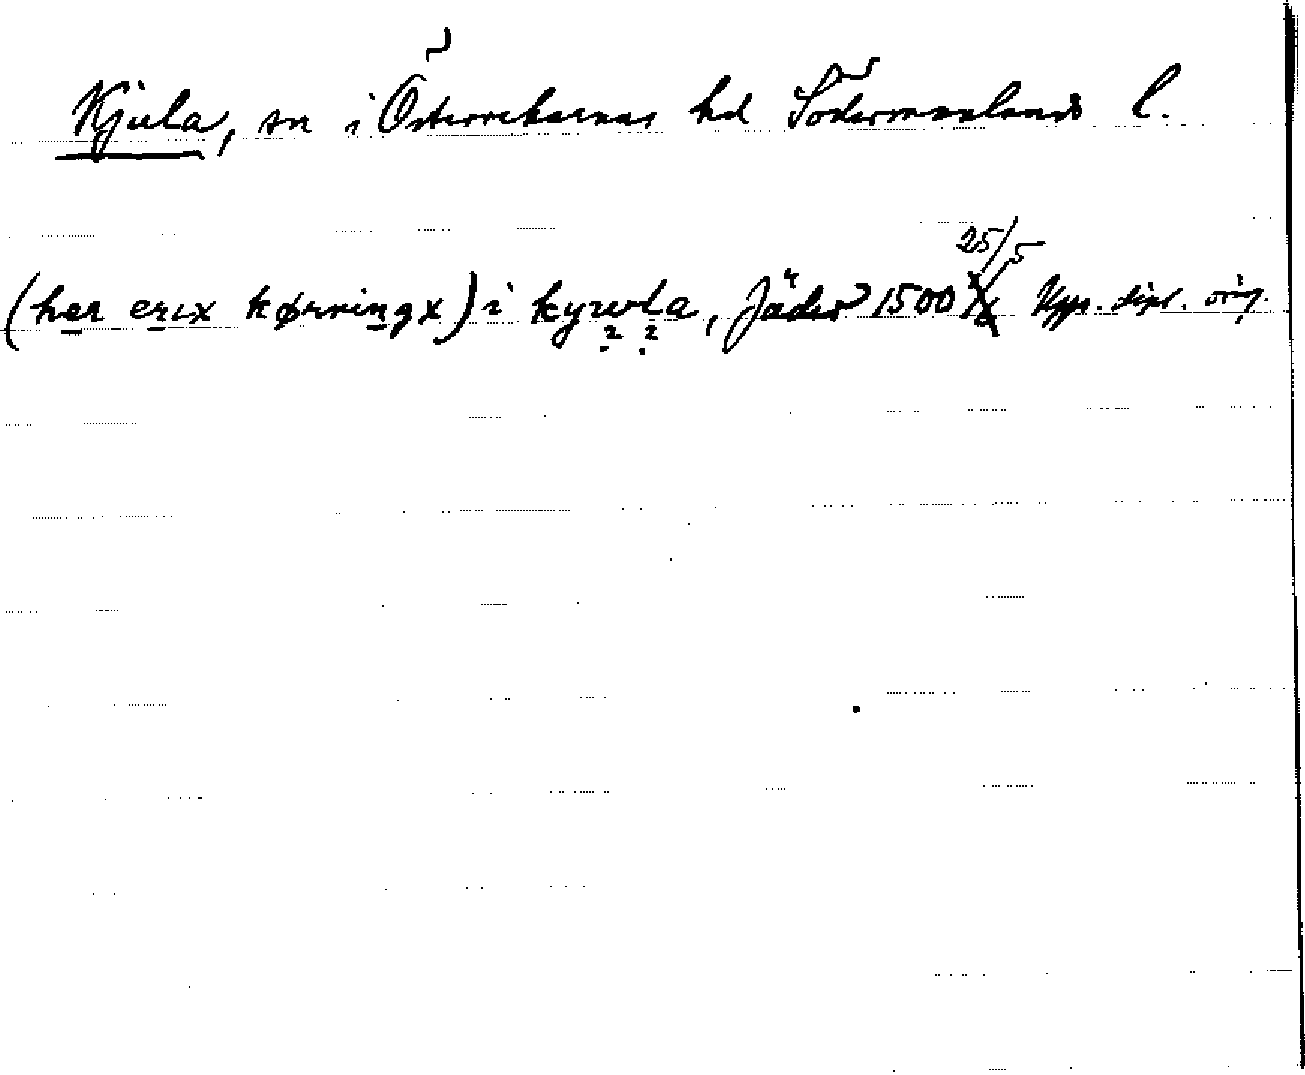 Kjula, sn i Österrekarnes hd Södermanlands l.
(her erıx kørningx) i kywla, Jäder 1500 25/5 Upps. dipl. orig.